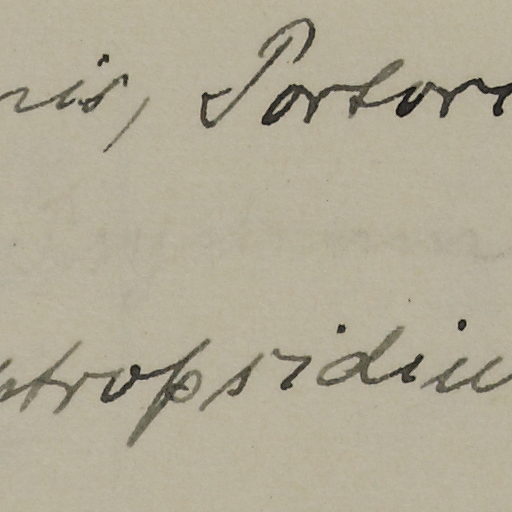 ris, Portori
stropsidiu